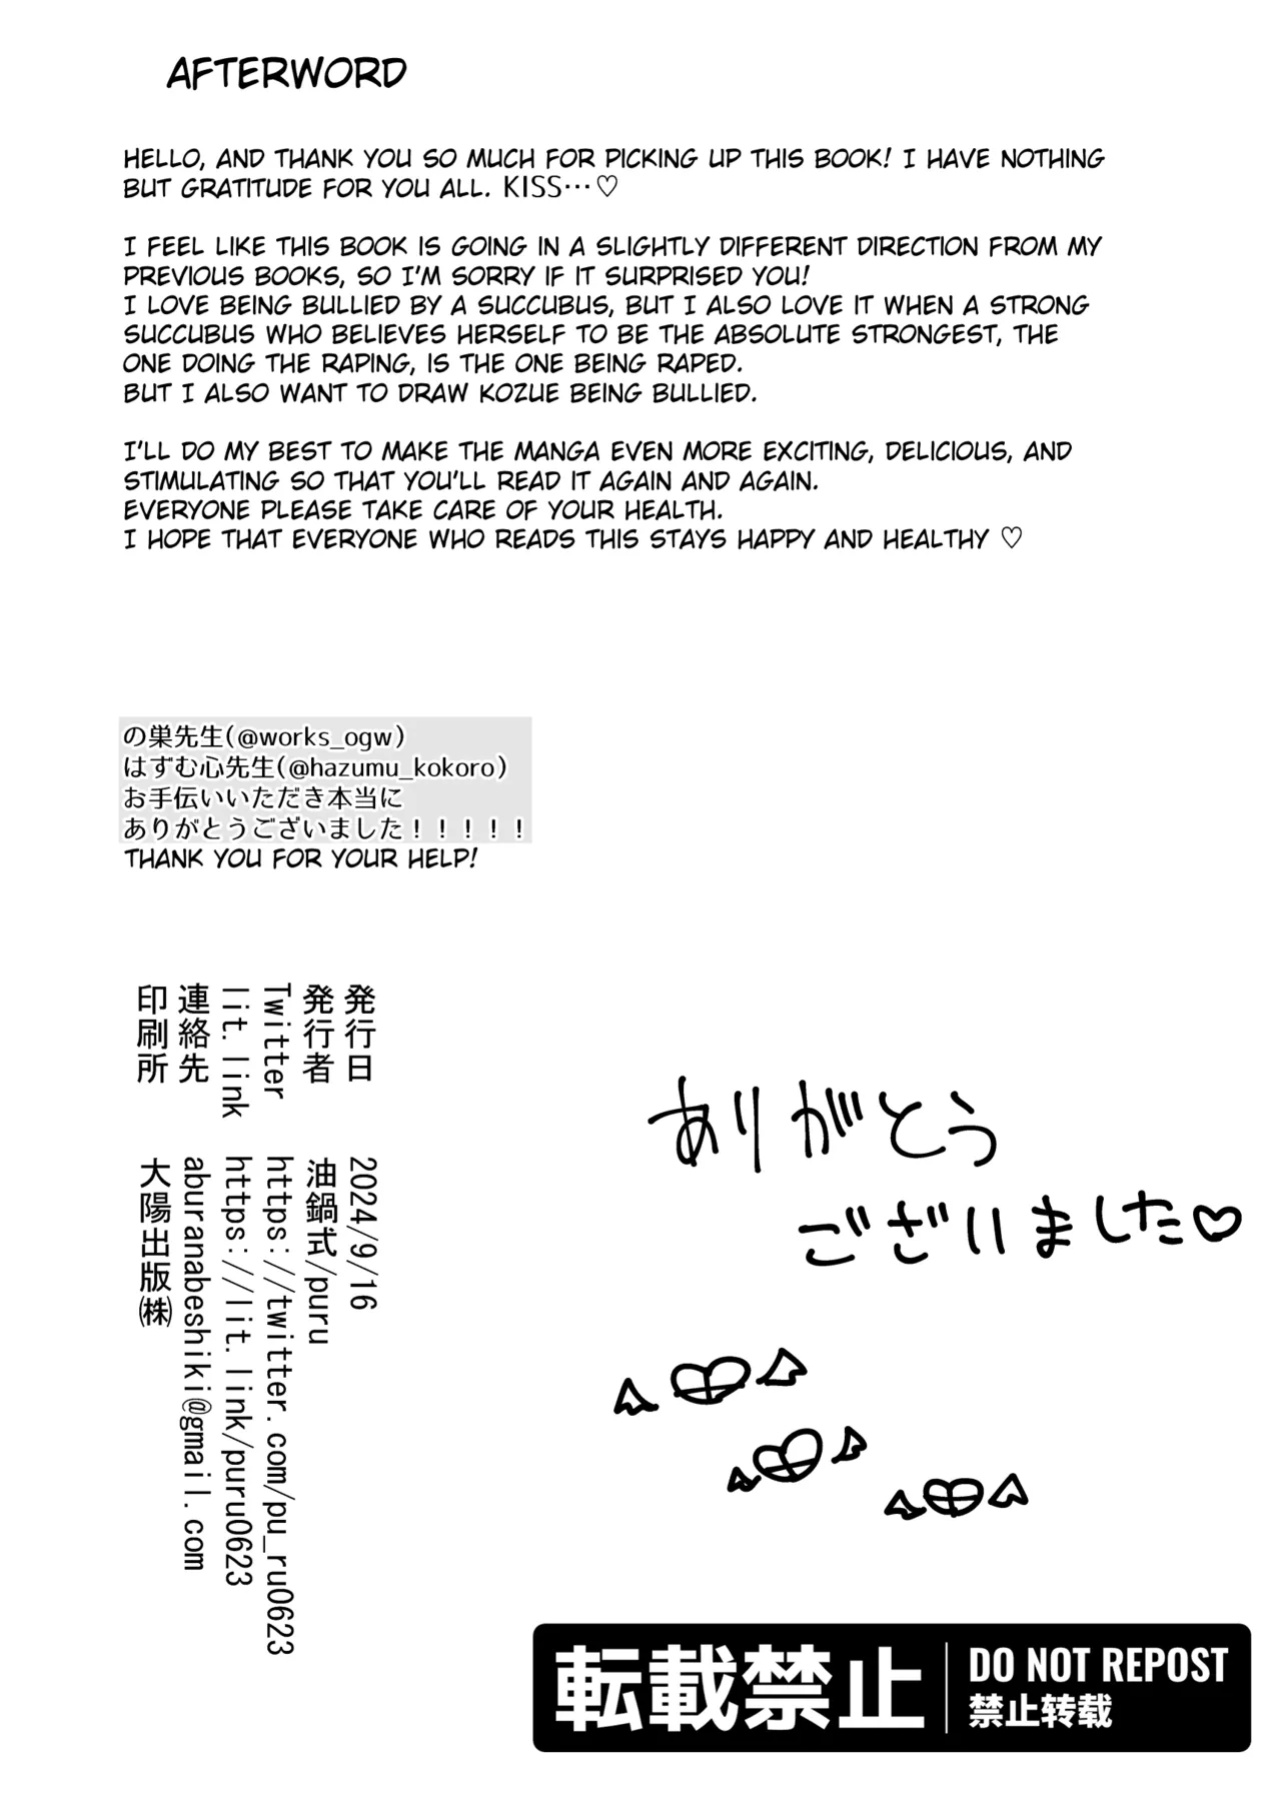 AFTERWORD
HELLO, AND THANK YOU SO MUCH FOR PICKING UP THIS BOOK! I HAVE NOTHING
BUT GRATITUDE FOR YOU ALL. KISS…♡
I FEEL LIKE THIS BOOK IS GOING IN A SLIGHTLY DIFFERENT DIRECTION FROM MY
PREVIOUS BOOKS, SO I'M SORRY IF IT SURPRISED YOU!
I LOVE BEING BULLIED BY A SUCCUBUS, BUT I ALSO LOVE IT WHEN A STRONG
SUCCUBUS WHO BELIEVES HERSELF TO BE THE ABSOLUTE STRONGEST, THE
ONE DOING THE RAPING, IS THE ONE BEING RAPED.
BUT I ALSO WANT TO DRAW KOZUE BEING BULLIED.
I'LL DO MY BEST TO MAKE THE MANGA EVEN MORE EXCITING, DELICIOUS, AND
STIMULATING SO THAT YOU'LL READ IT AGAIN AND AGAIN.
EVERYONE PLEASE TAKE CARE OF YOUR HEALTH.
I HOPE THAT EVERYONE WHO READS THIS STAYS HAPPY AND HEALTHY ♡
の巣先生(@works_ogw)
はずむ心先生(@hazumu_kokoro)
お手伝いいただき本当に
ありがとうございました！！！！！
THANK YOU FOR YOUR HELP!
発行日 2024/9/16
発行者 油鍋式/puru
Twitter https://twitter.com/pu_ru0623
lit.link https://lit.link/puru0623
連絡先 aburanabeshiki@gmail.com
印刷所 大陽出版㈱
ありがとう
ございました♡
転載禁止
DO NOT REPOST
禁止转载